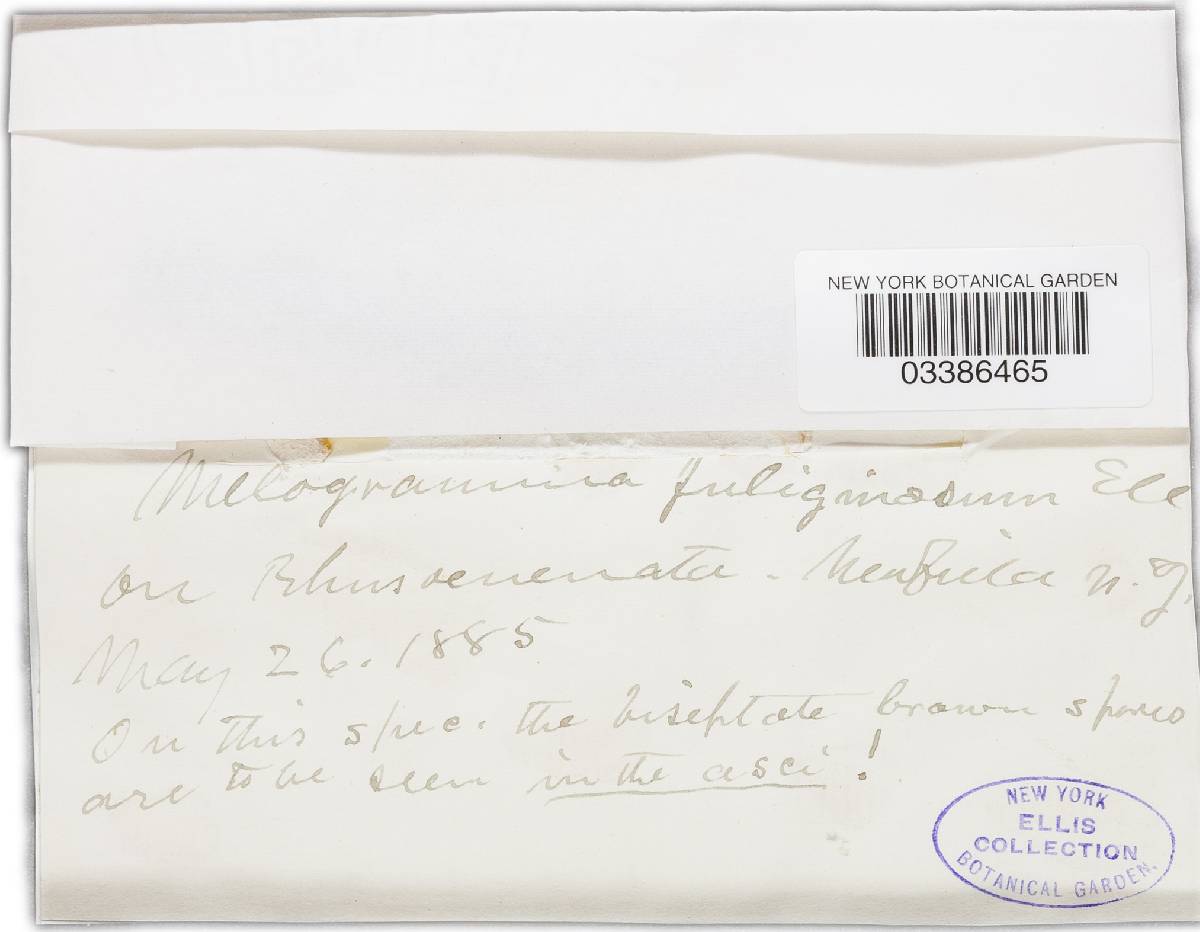 NEW YORK BOTANICAL GARDEN
03386465
Melogramma fuliginosum Ell
on Rhus venenata. Newfield N.J.
May 26. 1885
On this spec. the biseptate brown spores
are to be seen in the asci!
NEW YORK
ELLIS
COLLECTION
BOTANICAL GARDEN.